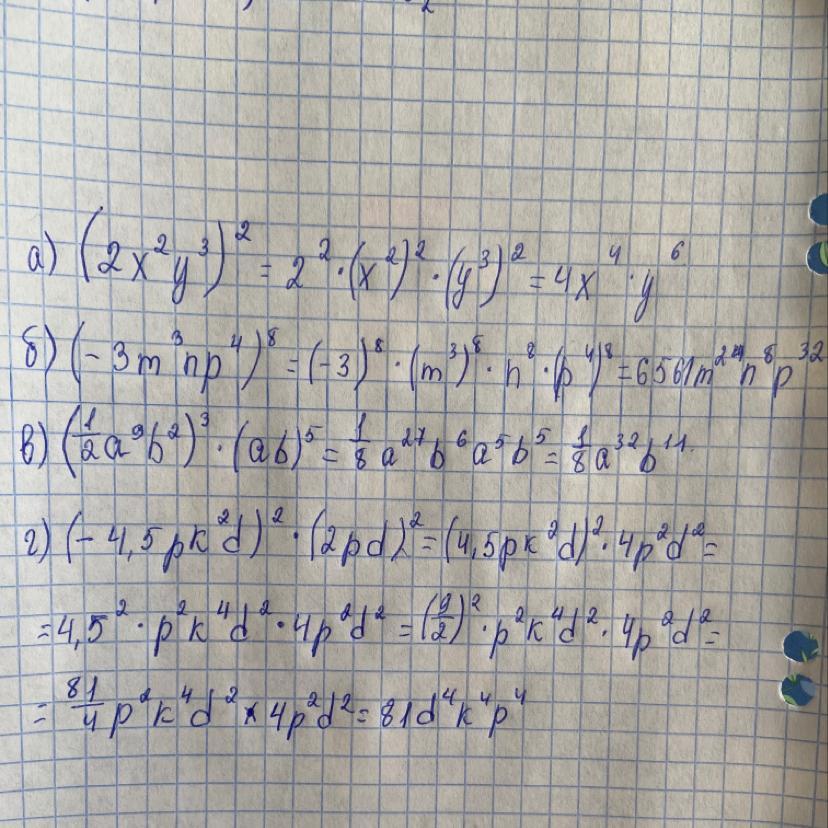 а) (2x²y³)² = 2² · (x²)² · (y³)² = 4x⁴ · y⁶
б) (-3m³np⁴)⁸ = (-3)⁸ · (m³)⁸ · n⁸ · (p⁴)⁸ = 6561m²⁴n⁸p³²
в) (1/2 a⁹b²)³ · (ab)⁵ = 1/8 a²⁷b⁶a⁵b⁵ = 1/8 a³²b¹¹
г) (-4,5pk²d)² · (2pd)² = (4,5pk²d)² · 4p²d² =
= 4,5² · p²k⁴d² · 4p²d² = (9/2)² · p²k⁴d² · 4p²d² =
= 81/4 p²k⁴d² × 4p²d² = 81d⁴k⁴p⁴